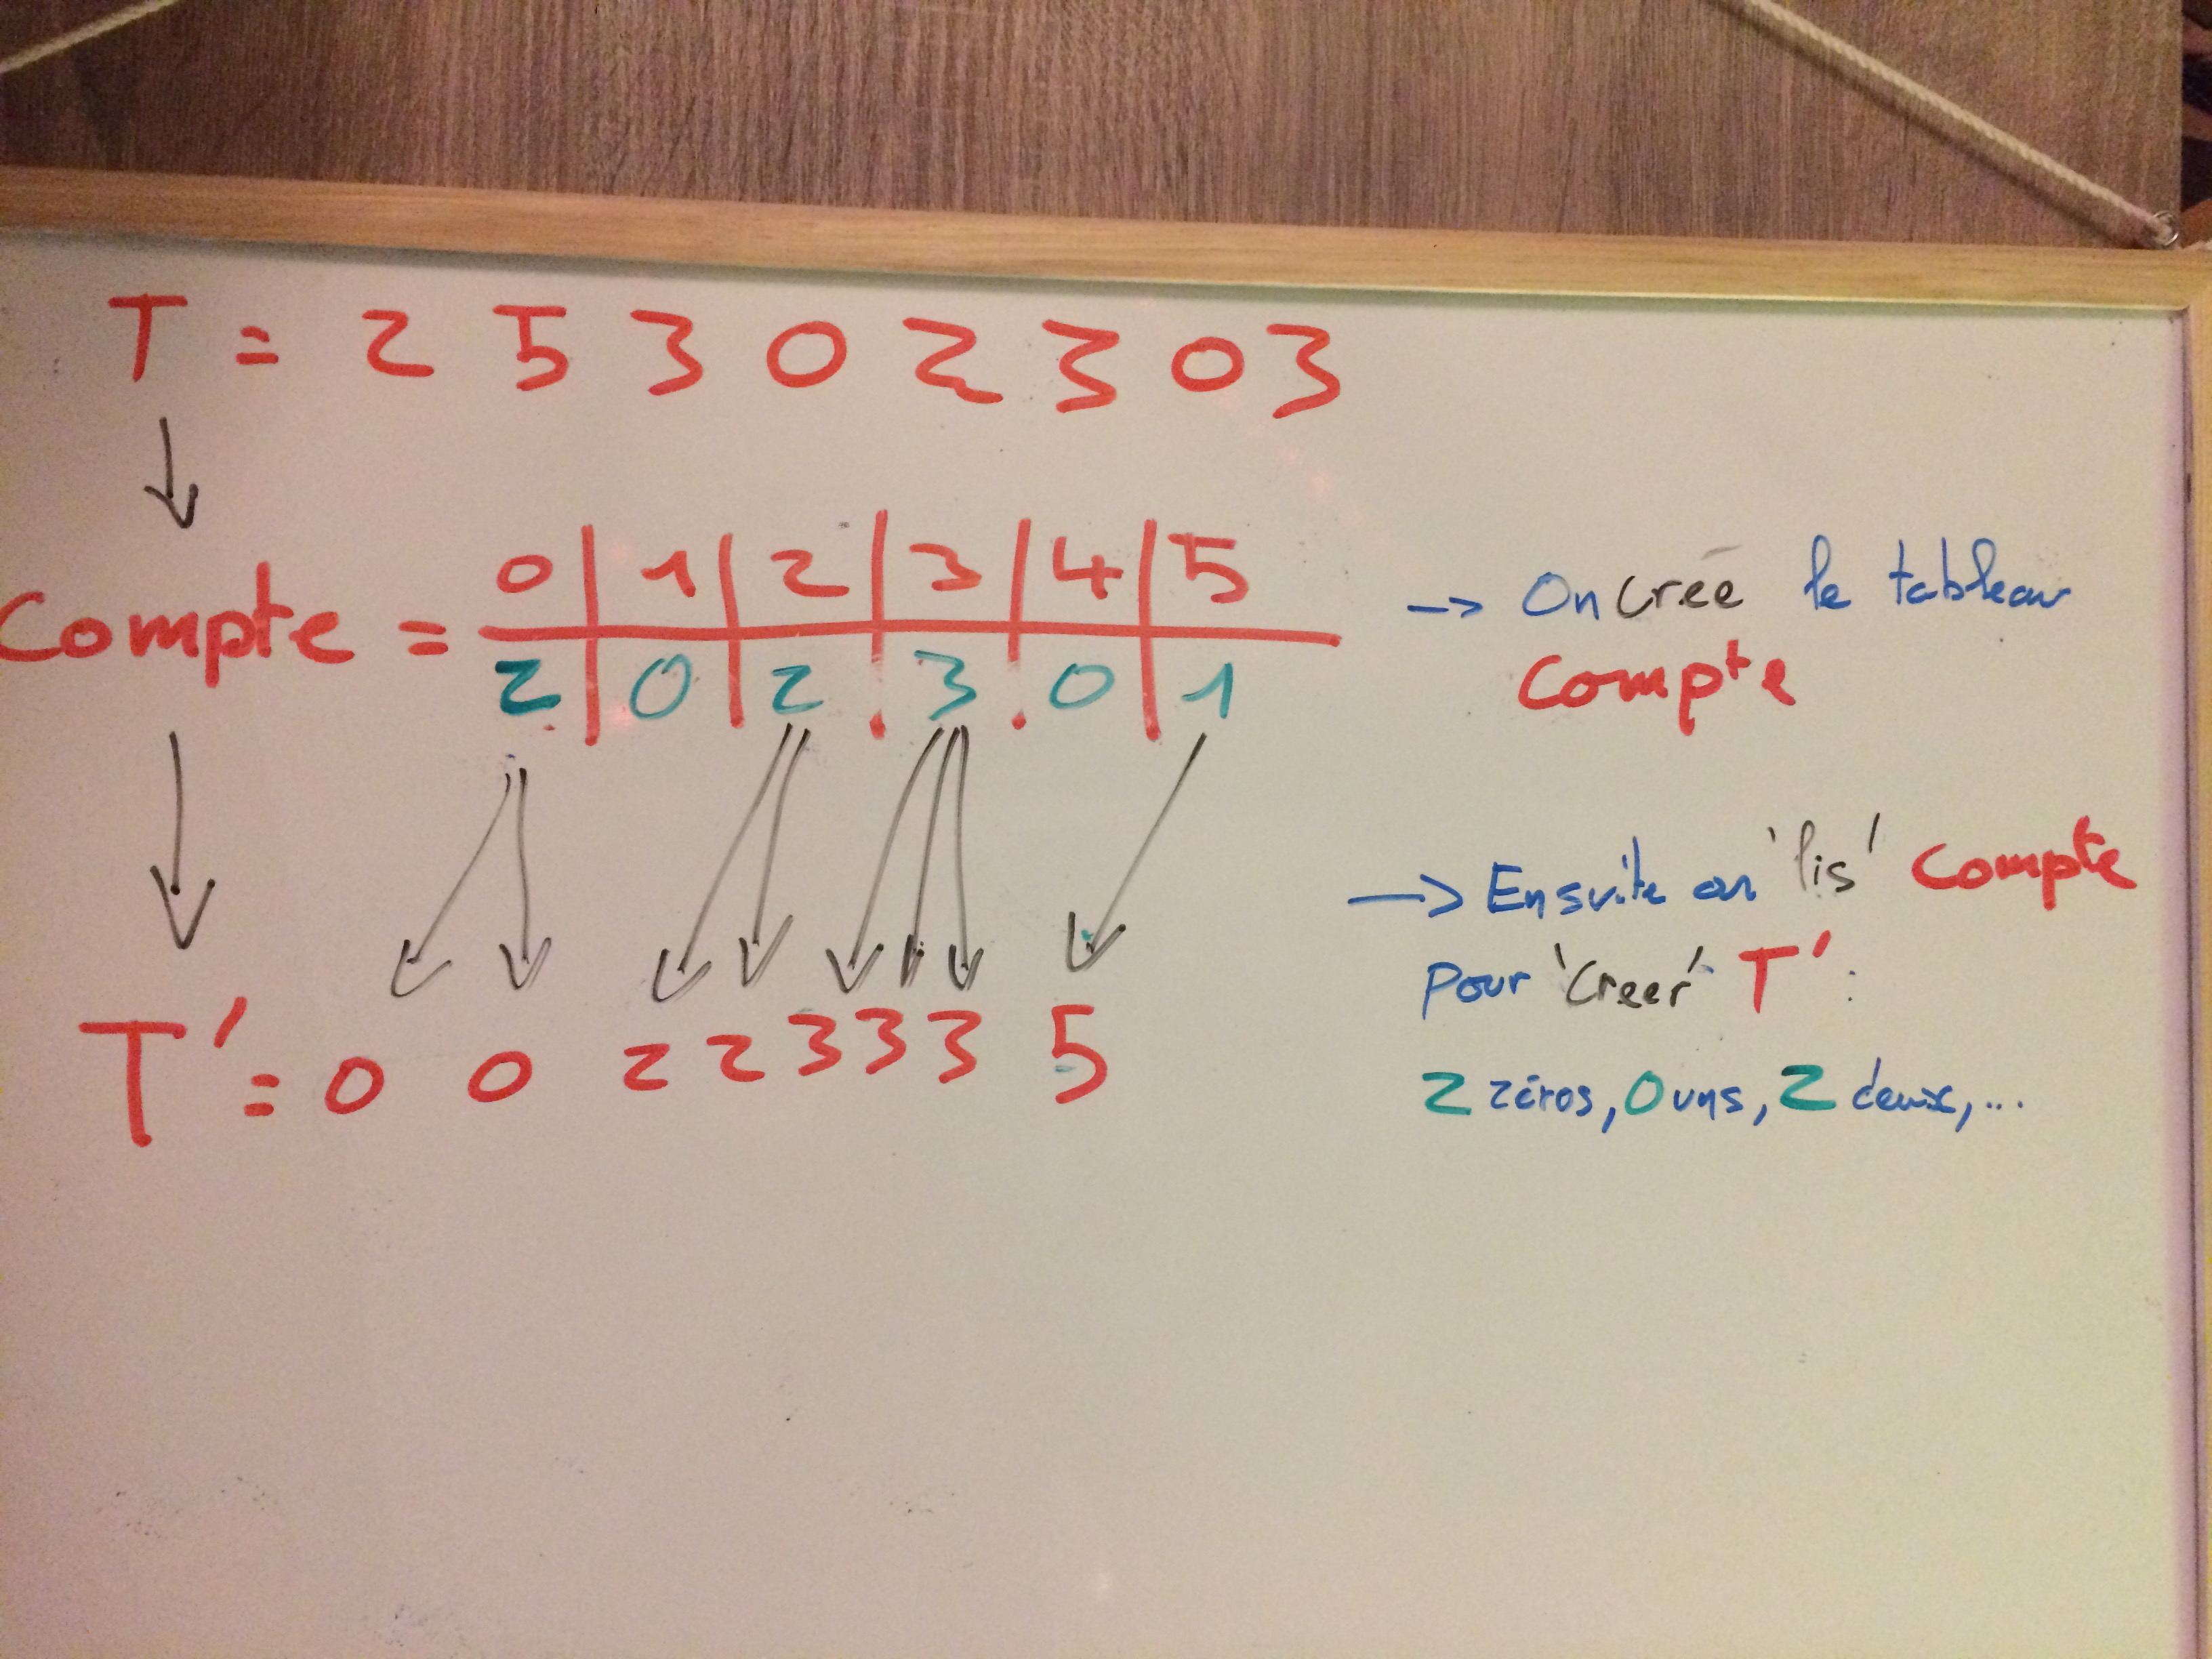 T = 2 5 3 0 2 3 0 3
Compte = 0 1 2 3 4 5
2 0 2 3 0 1
→ On crée le tableau
Compte
T' = 0 0 2 2 3 3 3 5
→ Ensuite on 'lis' Compte
pour 'creer' T' :
2 zéros, 0 uns, 2 deux, ...